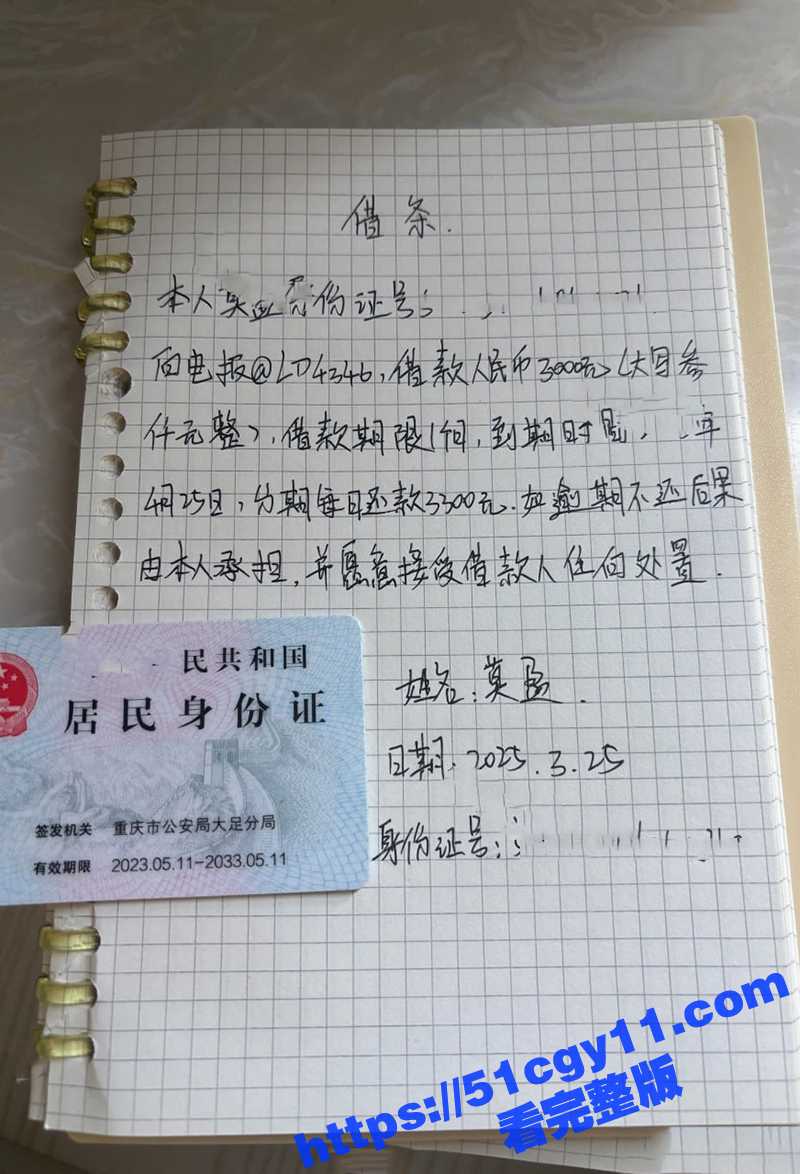 借条.
本人莫盈 身份证号:
向电报@LD4346,借款人民币3000元(大写叁
仟元整),借款期限1个月,到期时间 年
4月25日,分期每日还款3300元.如逾期不还后果
由本人承担,并愿意接受借款人任何处置.
民共和国
居民身份证
签发机关 重庆市公安局大足分局
有效期限 2023.05.11-2033.05.11
姓名:莫盈.
日期:2025.3.25
身份证号:
https://51cgy11.com
看完整版